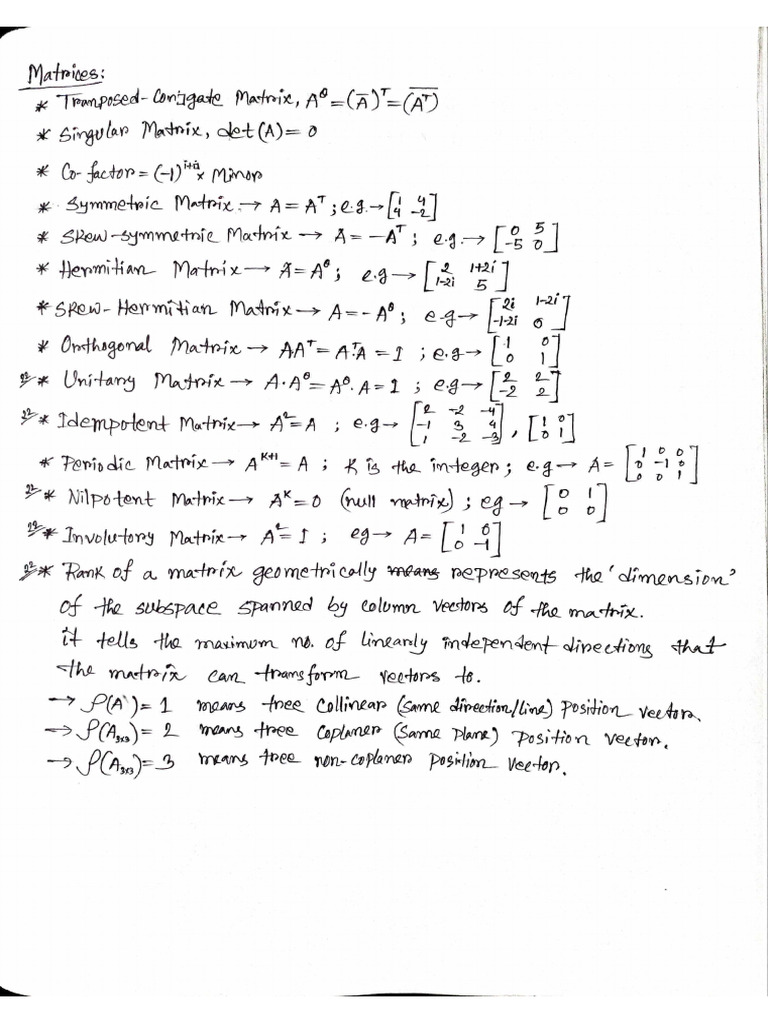 Matrices:
* Tranposed-Conjgate Matrix, A^θ = (Ā)^T = \overline{(A^T)}
* Singular Matrix, det(A) = 0
* Co-factor = (-1)^{i+j} × Minor
* Symmetric Matrix → A = A^T ; e.g. → [1 4; 4 -2]
* Skew-symmetric Matrix → A = -A^T ; e.g. → [0 5; -5 0]
* Hermitian Matrix → A = A^θ ; e.g → [2 1+2i; 1-2i 5]
* Skew-Hermitian Matrix → A = -A^θ ; e-g → [2i 1-2i; -1-2i 0]
* Orthogonal Matrix → AA^T = A^T.A = I ; e.g → [1 0; 0 1]
* Unitary Matrix → A.A^θ = A^θ.A = I ; e.g → [2 2; -2 2]
* Idempotent Matrix → A^2 = A ; e.g → [2 -2 -4; -1 3 4; 1 -2 -3], [1 0; 0 1]
* Periodic Matrix → A^{K+1} = A ; K is the integer ; e.g → A = [1 0 0; 0 -1 0; 0 0 1]
* Nilpotent Matrix → A^K = 0 (null matrix) ; eg → [0 1; 0 0]
* Involutory Matrix → A^2 = I ; eg → A = [1 0; 0 -1]
* Rank of a matrix geometrically means represents the 'dimension'
of the subspace spanned by column vectors of the matrix.
it tells the maximum no. of linearly independent directions that
the matrix can transform vectors to.
→ ρ(A) = 1 means tree collinear (same direction/line) position vector.
→ ρ(A_{3×3}) = 2 means tree coplaner (same plane) position vector.
→ ρ(A_{3×3}) = 3 means tree non-coplaner position vector.